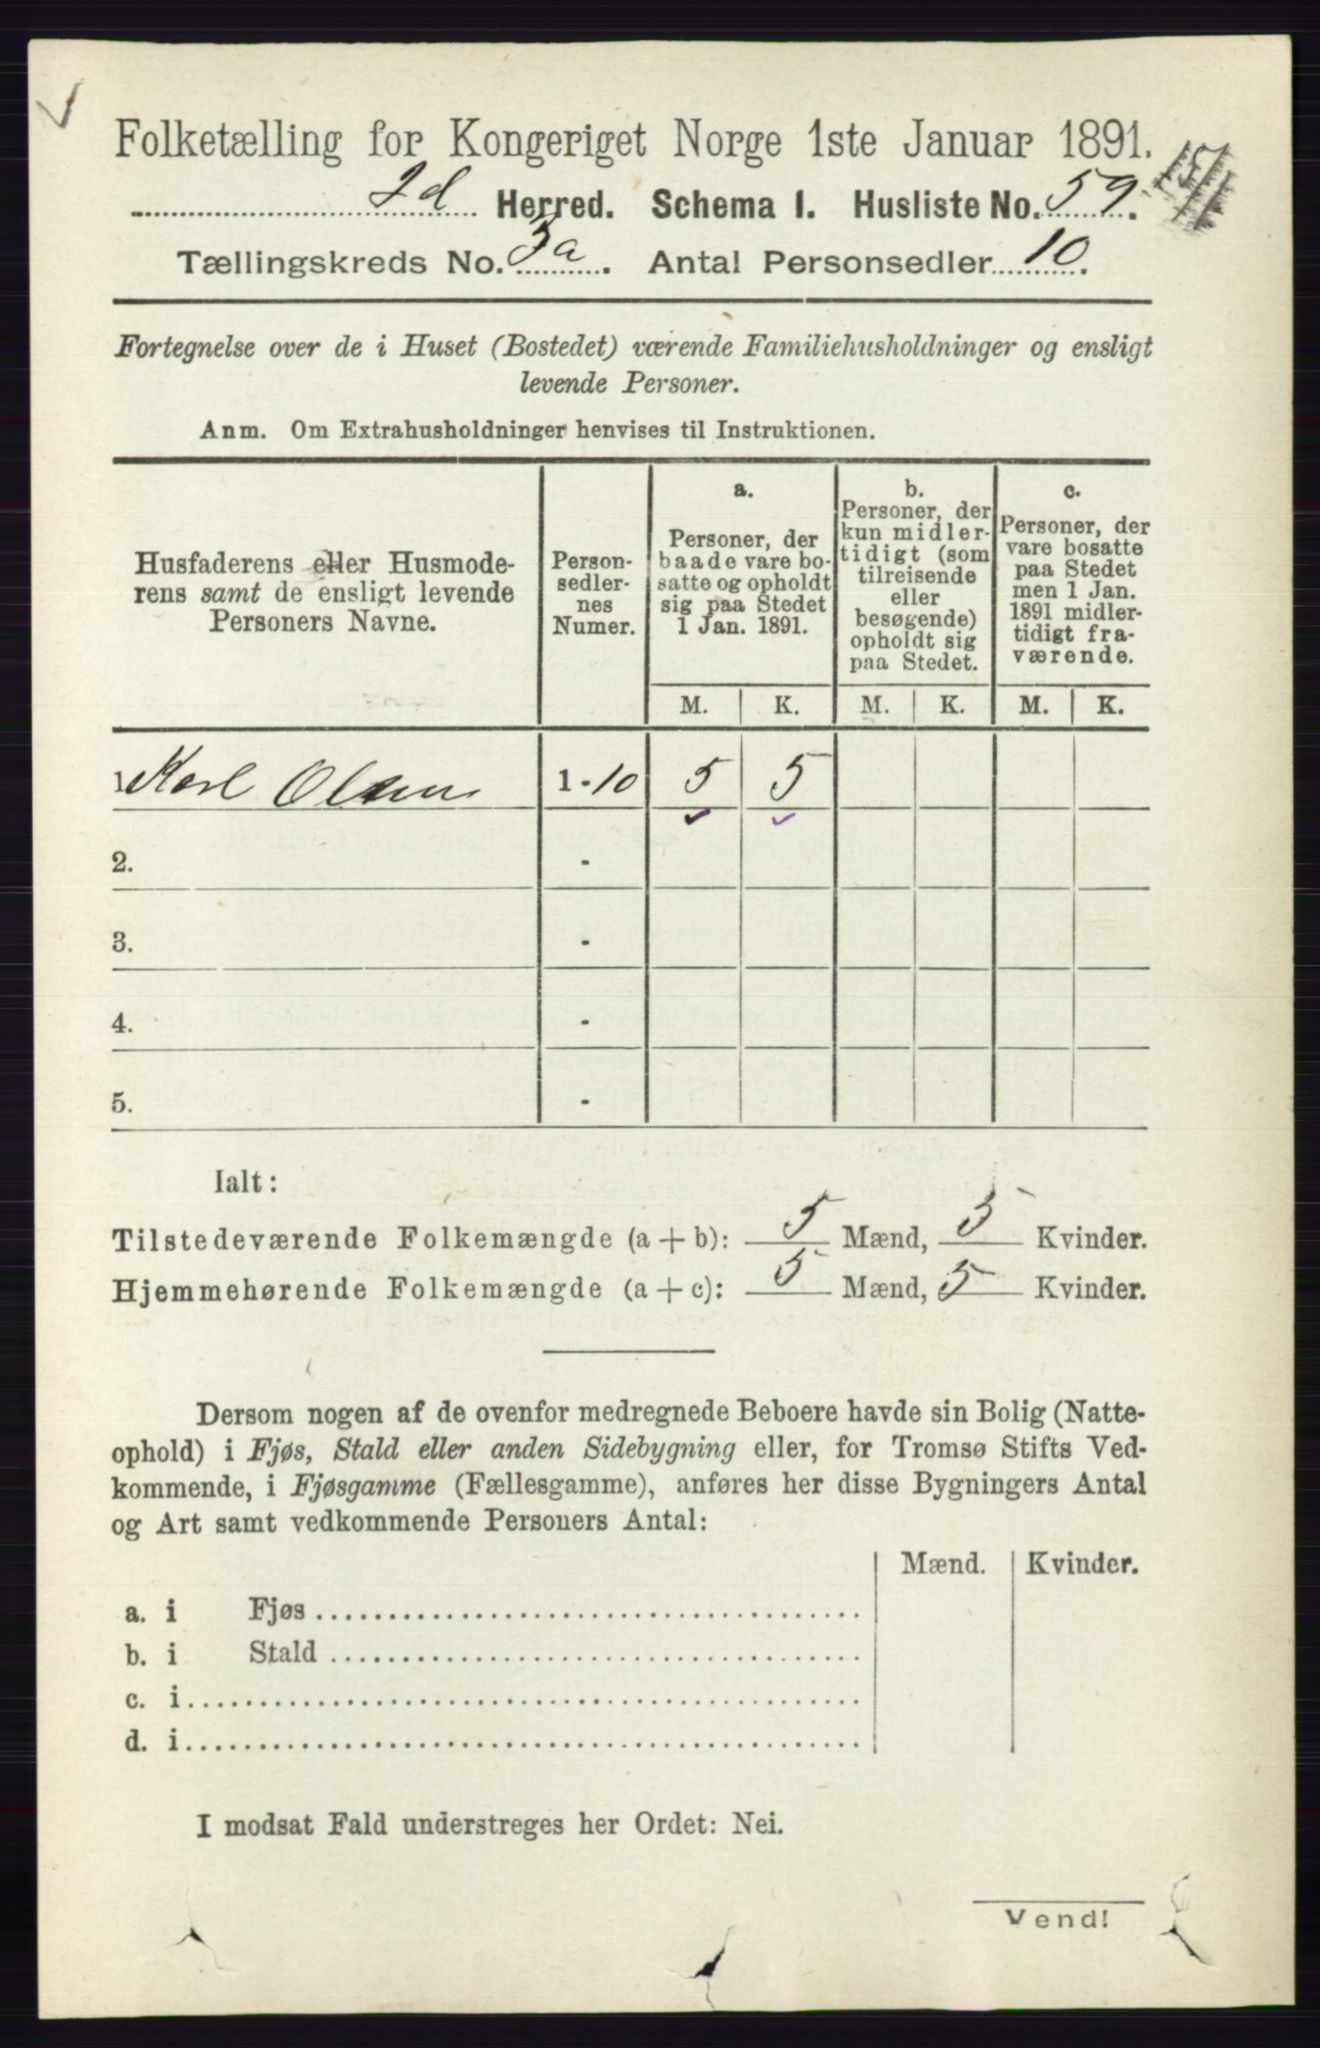 Folketælling for Kongeriget Norge 1ste Januar 1891.
Id Herred. Schema I. Husliste No. 59.
Tællingskreds No. 3a. Antal Personsedler 10.
Fortegnelse over de i Huset (Bostedet) værende Familiehusholdninger og ensligt
levende Personer.
Anm. Om Extrahusholdninger henvises til Instruktionen.
Husfaderens eller Husmode-
rens samt de ensligt levende
Personers Navne.
Person-
sedler-
nes
Numer.
a.
Personer, der
baade vare bo-
satte og opholdt
sig paa Stedet
1 Jan. 1891.
b.
Personer, der
kun midler-
tidigt (som
tilreisende
eller
besøgende)
opholdt sig
paa Stedet.
c.
Personer, der
vare bosatte
paa Stedet
men 1 Jan.
1891 midler-
tidigt fra-
værende.
M. K. M. K. M. K.
1 Karl Olsen 1-10 5 5
2. -
3. -
4. -
5. -
Ialt:
Tilstedeværende Folkemængde (a + b): 5 Mænd, 5 Kvinder.
Hjemmehørende Folkemængde (a + c): 5 Mænd, 5 Kvinder.
Dersom nogen af de ovenfor medregnede Beboere havde sin Bolig (Natte-
ophold) i Fjøs, Stald eller anden Sidebygning eller, for Tromsø Stifts Ved-
kommende, i Fjøsgamme (Fællesgamme), anføres her disse Bygningers Antal
og Art samt vedkommende Personers Antal:
Mænd. Kvinder.
a. i Fjøs
b. i Stald
c. i
d. i
I modsat Fald understreges her Ordet: Nei.
Vend!